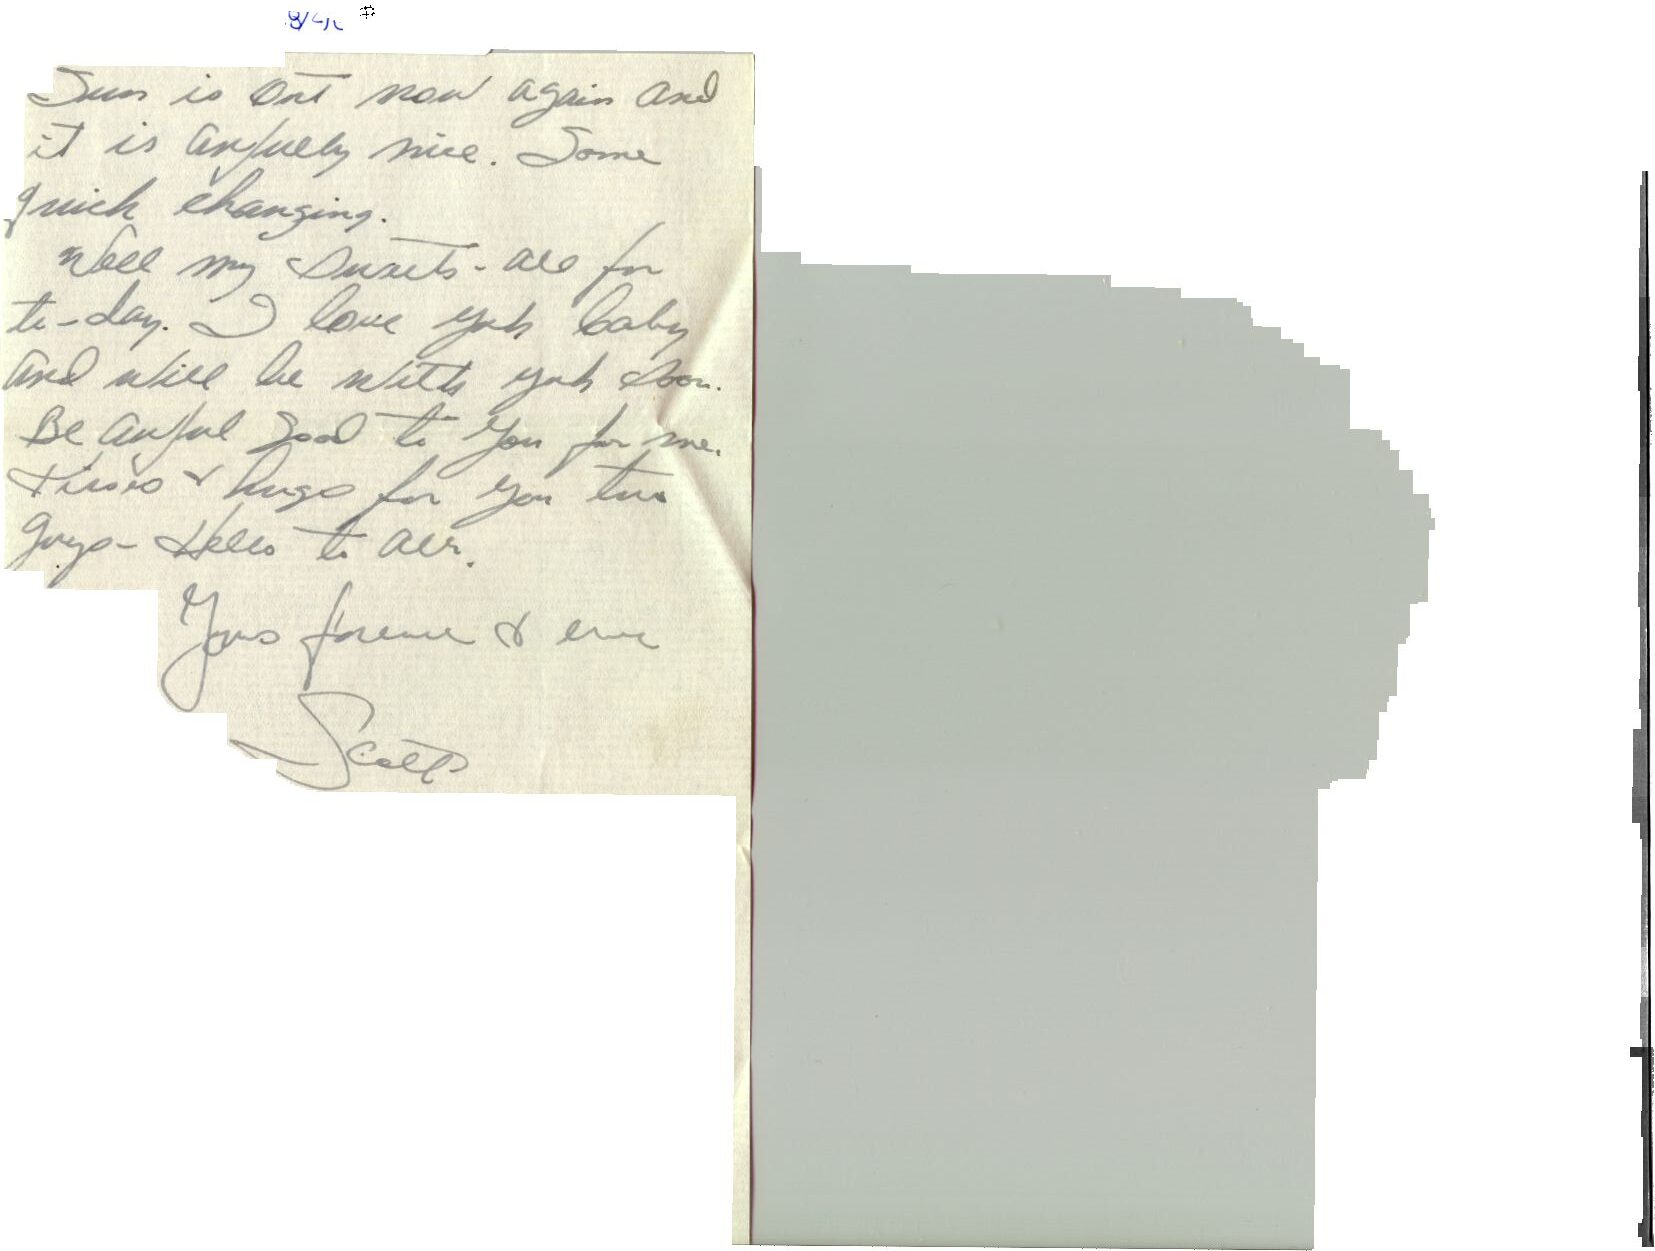 Sun is out now again and
it is awfully nice. Some
quick changing.
Well my sweets - all for
to-day. I love yuh baby
and will be with yuh soon.
Be awful good to you for me.
Kisses & hugs for you two
guys - Hello to all.
Yours forever & ever
Scott